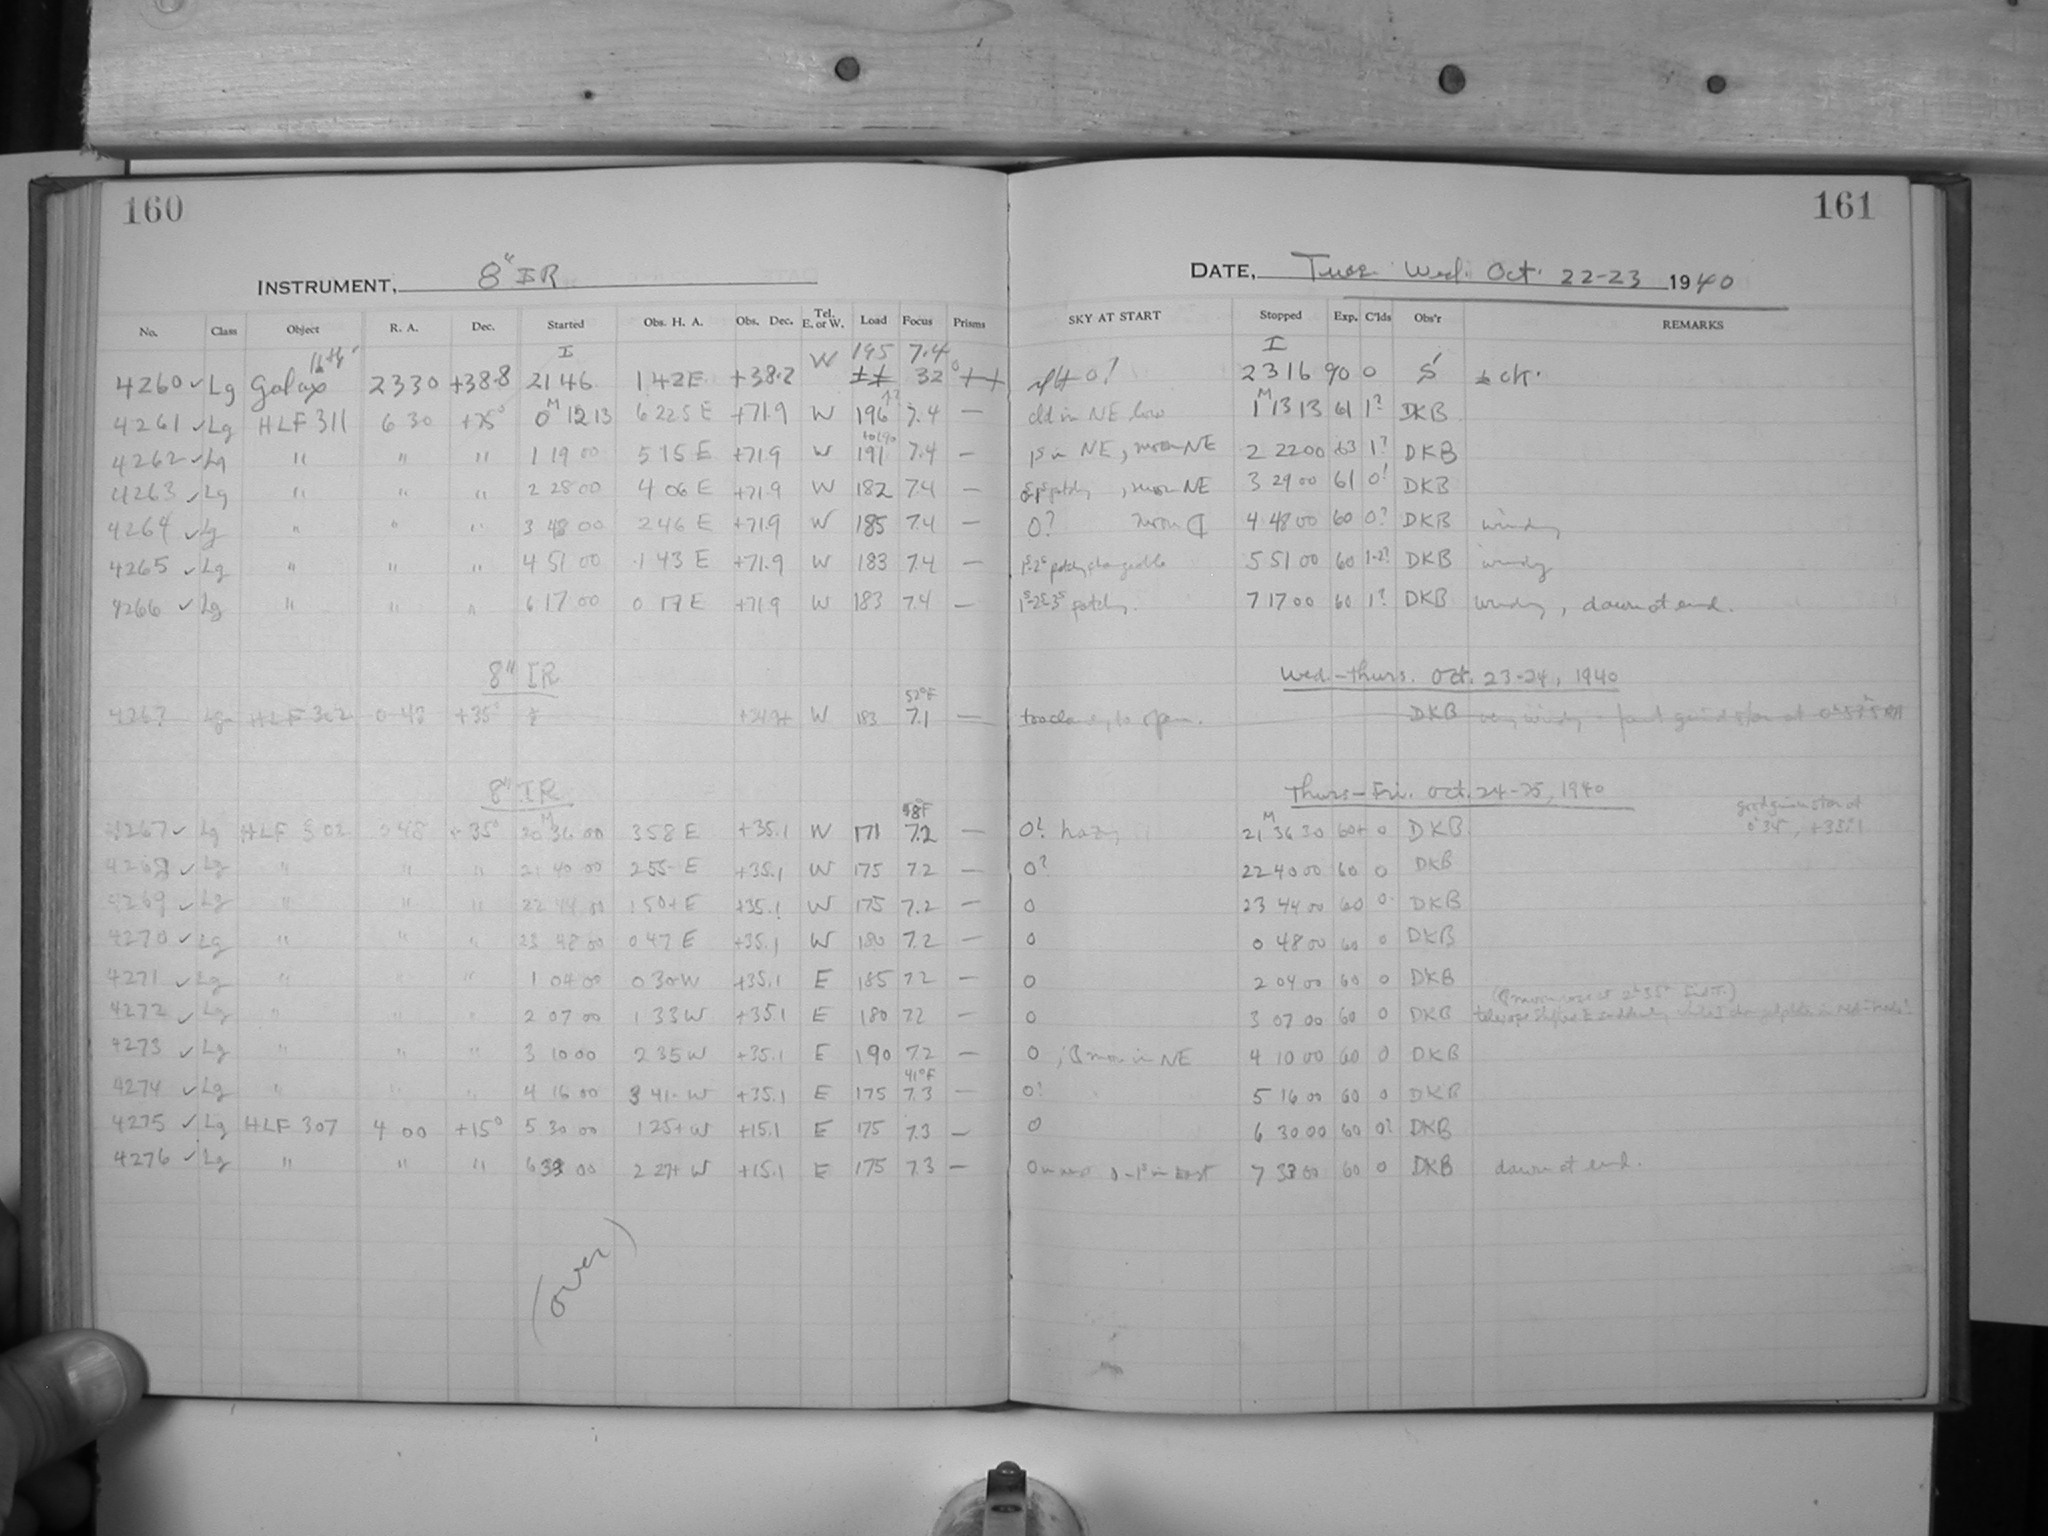 160
161
INSTRUMENT, 8" IR
DATE, Tues. Wed. Oct. 22-23 1940
No. Class Object R. A. Dec. Started Obs. H. A. Obs. Dec. Tel. E. or W. Load Focus Prisms SKY AT START Stopped Exp. C'lds Obs'r REMARKS
4260 ✓ Lg Galax 2330 +38.8 2146 142E +38.2 W 195 7.4 32° 0! 2316 90 0 S ok.
4261 ✓ Lg HLF 311 6 30 +75° 0 12 13 6 225 E +71.9 W 196 7.4 — cld in NE low 1 13 13 61 1? DKB
4262 ✓ Lg " " " 1 19 00 5 15 E +71.9 W 191 7.4 — in NE, moon NE 2 22 00 63 1? DKB
4263 ✓ Lg " " " 2 28 00 4 06 E +71.9 W 182 7.4 — patchy, moon NE 3 29 00 61 0! DKB
4264 ✓ Lg " " " 3 48 00 2 46 E +71.9 W 185 7.4 — 0? moon 4 48 00 60 0? DKB windy
4265 ✓ Lg " " " 4 51 00 1 43 E +71.9 W 183 7.4 — 1-2 patchy changeable 5 51 00 60 1-2? DKB windy
4266 ✓ Lg " " " 6 17 00 0 17 E +71.9 W 183 7.4 — patchy. 7 17 00 60 1? DKB windy, dawn at end.
8" IR
Wed.-Thurs. Oct. 23-24, 1940
52°F
4267 Lg HLF 302 0 48 +35° W 183 7.1 — too cloudy to open. DKB very windy - faint guide star at
8" IR
Thurs-Fri. Oct. 24-25, 1940
48°F
good guide star at
4267 ✓ Lg HLF 302 0 48 +35° 20 36 00 3 58 E +35.1 W 171 7.2 — 0? hazy 21 36 30 60+ 0 DKB
4268 ✓ Lg " " " 21 40 00 2 55 E +35.1 W 175 7.2 — 0? 22 40 00 60 0 DKB
4269 ✓ Lg " " " 22 44 00 1 50+ E +35.1 W 175 7.2 — 0 23 44 00 60 0 DKB
4270 ✓ Lg " " " 23 48 00 0 47 E +35.1 W 180 7.2 — 0 0 48 00 60 0 DKB
4271 ✓ Lg " " " 1 04 00 0 30 W +35.1 E 185 7.2 — 0 2 04 00 60 0 DKB
4272 ✓ Lg " " " 2 07 00 1 33 W +35.1 E 180 72 — 0 3 07 00 60 0 DKB
4273 ✓ Lg " " " 3 10 00 2 35 W +35.1 E 190 7.2 — 0; moon in NE 4 10 00 60 0 DKB
41°F
4274 ✓ Lg " " " 4 16 00 3 41 W +35.1 E 175 7.3 — 0? 5 16 00 60 0 DKB
4275 ✓ Lg HLF 307 4 00 +15° 5 30 00 1 25+ W +15.1 E 175 7.3 — 0 6 30 00 60 0? DKB
4276 ✓ Lg " " " 6 33 00 2 27+ W +15.1 E 175 7.3 — 7 33 00 60 0 DKB dawn at end.
(over)